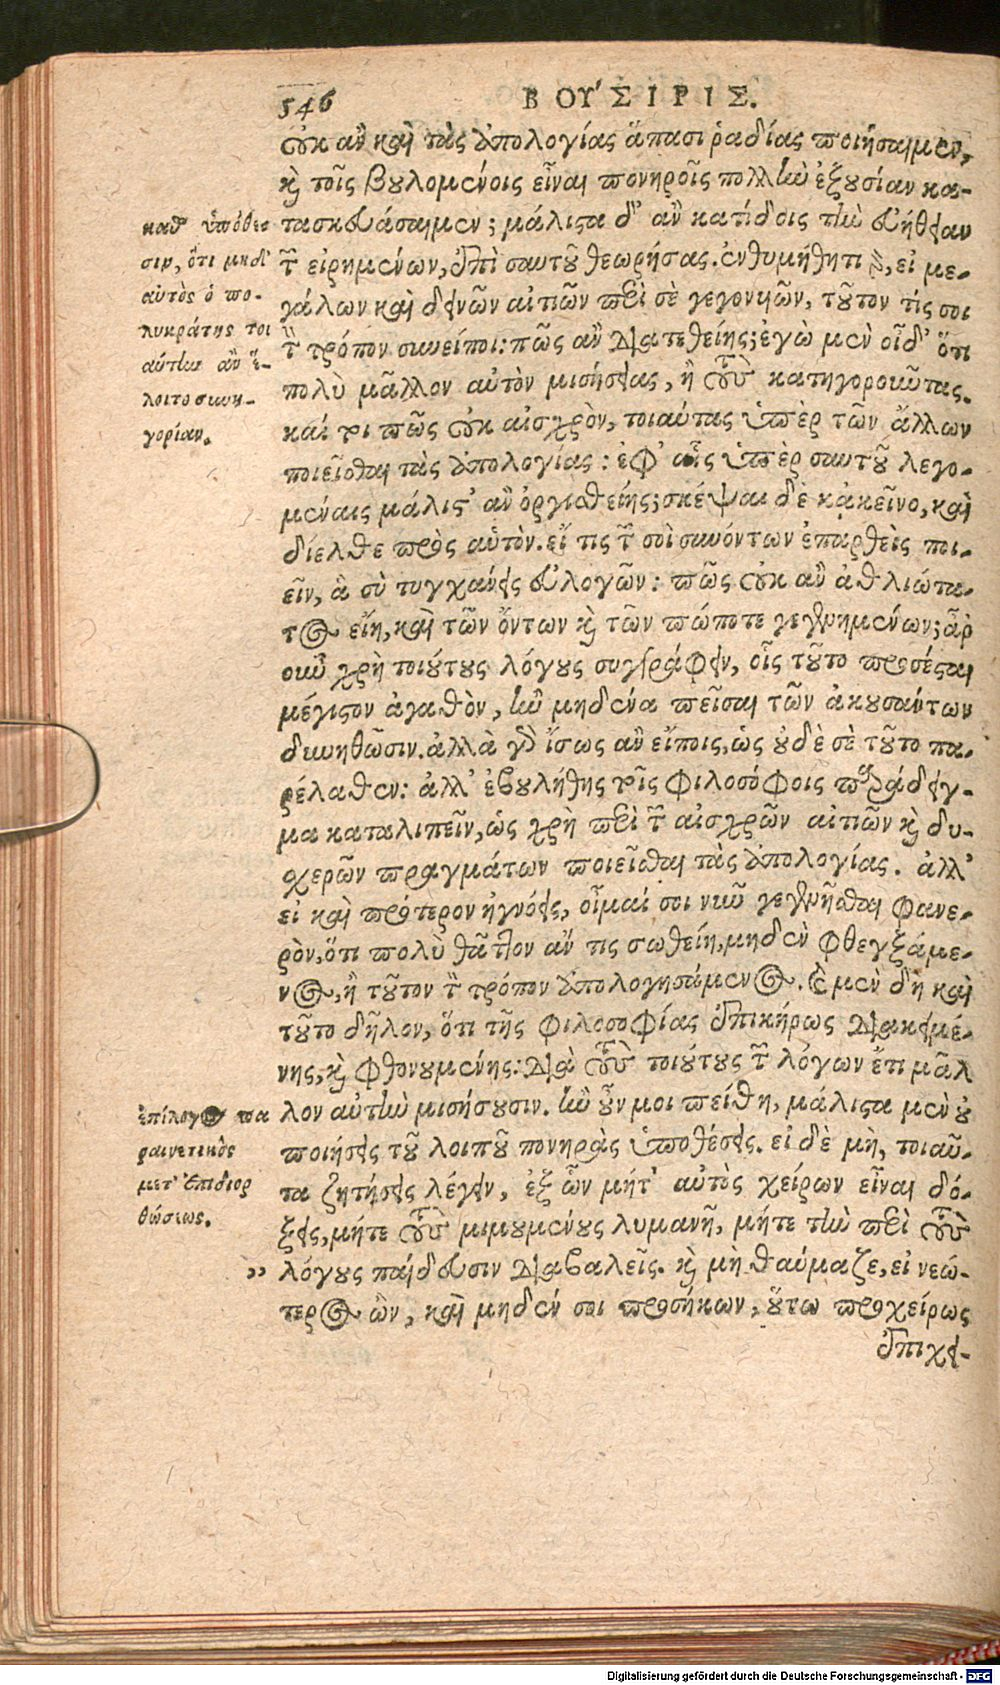 546 ΒΟΥΣΙΡΙΣ.
οὐκ ἂν καὶ τὰς ἀπολογίας ἅπασι ῥαδίας ποιήσαιμεν,
καὶ τοῖς βουλομένοις εἶναι πονηροῖς πολλὴν ἐξουσίαν κα-
τασκευάσαιμεν; μάλιστα δ' ἂν κατίδοις τὴν εὐήθειαν
τῶν εἰρημένων, ἐπὶ σαυτοῦ θεωρήσας. ἐνθυμήθητι γὰρ, εἰ με-
γάλων καὶ δεινῶν αἰτιῶν περὶ σὲ γεγονυιῶν, τοῦτον τίς σοι
τὸν τρόπον συνείποι: πῶς ἂν διατεθείης; ἐγὼ μὲν οἶδ' ὅτι
πολὺ μᾶλλον αὐτὸν μισήσειας, ἢ τοὺς κατηγοροῦντας.
καίτοι πῶς οὐκ αἰσχρὸν, τοιαύτας ὑπὲρ τῶν ἄλλων
ποιεῖσθαι τὰς ἀπολογίας: ἐφ' αἷς ὑπὲρ σαυτοῦ λεγο-
μέναις μάλιστ' ἂν ὀργισθείης; σκέψαι δὲ κἀκεῖνο, καὶ
δίελθε πρὸς αὑτὸν. εἴ τις τῶν σοὶ συνόντων ἐπαρθεὶς ποι-
εῖν, ἃ σὺ τυγχάνεις εὐλογῶν: πῶς οὐκ ἂν ἀθλιώτα-
τος εἴη, καὶ τῶν ὄντων καὶ τῶν πώποτε γεγενημένων; ἆρ'
οὖν χρὴ τοιούτους λόγους συγγράφειν, οἷς τοῦτο προσέσται
μέγιστον ἀγαθὸν, ἢν μηδένα πεῖσαι τῶν ἀκουσάντων
δυνηθῶσιν. ἀλλὰ γὰρ ἴσως ἂν εἴποις, ὡς οὐδὲ σὲ τοῦτο πα-
ρέλαθεν: ἀλλ' ἐβουλήθης τοῖς φιλοσόφοις παράδειγ-
μα καταλιπεῖν, ὡς χρὴ περὶ τῶν αἰσχρῶν αἰτιῶν καὶ δυ-
χερῶν πραγμάτων ποιεῖσθαι τὰς ἀπολογίας. ἀλλ'
εἰ καὶ πρότερον ἠγνόεις, οἶμαί σοι νῦν γεγενῆσθαι φανε-
ρὸν, ὅτι πολὺ θᾶττον ἄν τις σωθείη, μηδὲν φθεγξάμε-
νος, ἢ τοῦτον τὸν τρόπον ἀπολογησάμενος. καὶ μὲν δὴ καὶ
τοῦτο δῆλον, ὅτι τῆς φιλοσοφίας ἐπικήρως διακειμέ-
νης, καὶ φθονουμένης: διὰ τοὺς τοιούτους τῶν λόγων ἔτι μᾶλ
λον αὐτὴν μισήσουσιν. ἢν οὖν μοι πείθῃ, μάλιστα μὲν οὐ
ποιήσεις τοῦ λοιποῦ πονηρὰς ὑποθέσεις. εἰ δὲ μὴ, τοιαῦ-
τα ζητήσεις λέγειν, ἐξ ὧν μήτ' αὐτὸς χείρων εἶναι δό-
ξεις, μήτε τοὺς μιμουμένους λυμανῇ, μήτε τὴν περὶ τοὺς
λόγους παίδευσιν διαβαλεῖς. καὶ μὴ θαύμαζε, εἰ νεώ-
τερος ὢν, καὶ μηδέν σοι προσήκων, οὕτω προχείρως
ἐπιχει-
καθ' ὑπόθε
σιν, ὅτι μηδ'
αὐτὸς ὁ πο-
λυκράτης τοι
αύτην ἂν ἕ-
λοιτο συνη-
γορίαν.
ἐπίλογος πα
ραινετικὸς
μετ' ἐπιδιορ
θώσεως.
"
Digitalisierung gefördert durch die Deutsche Forschungsgemeinschaft - DFG